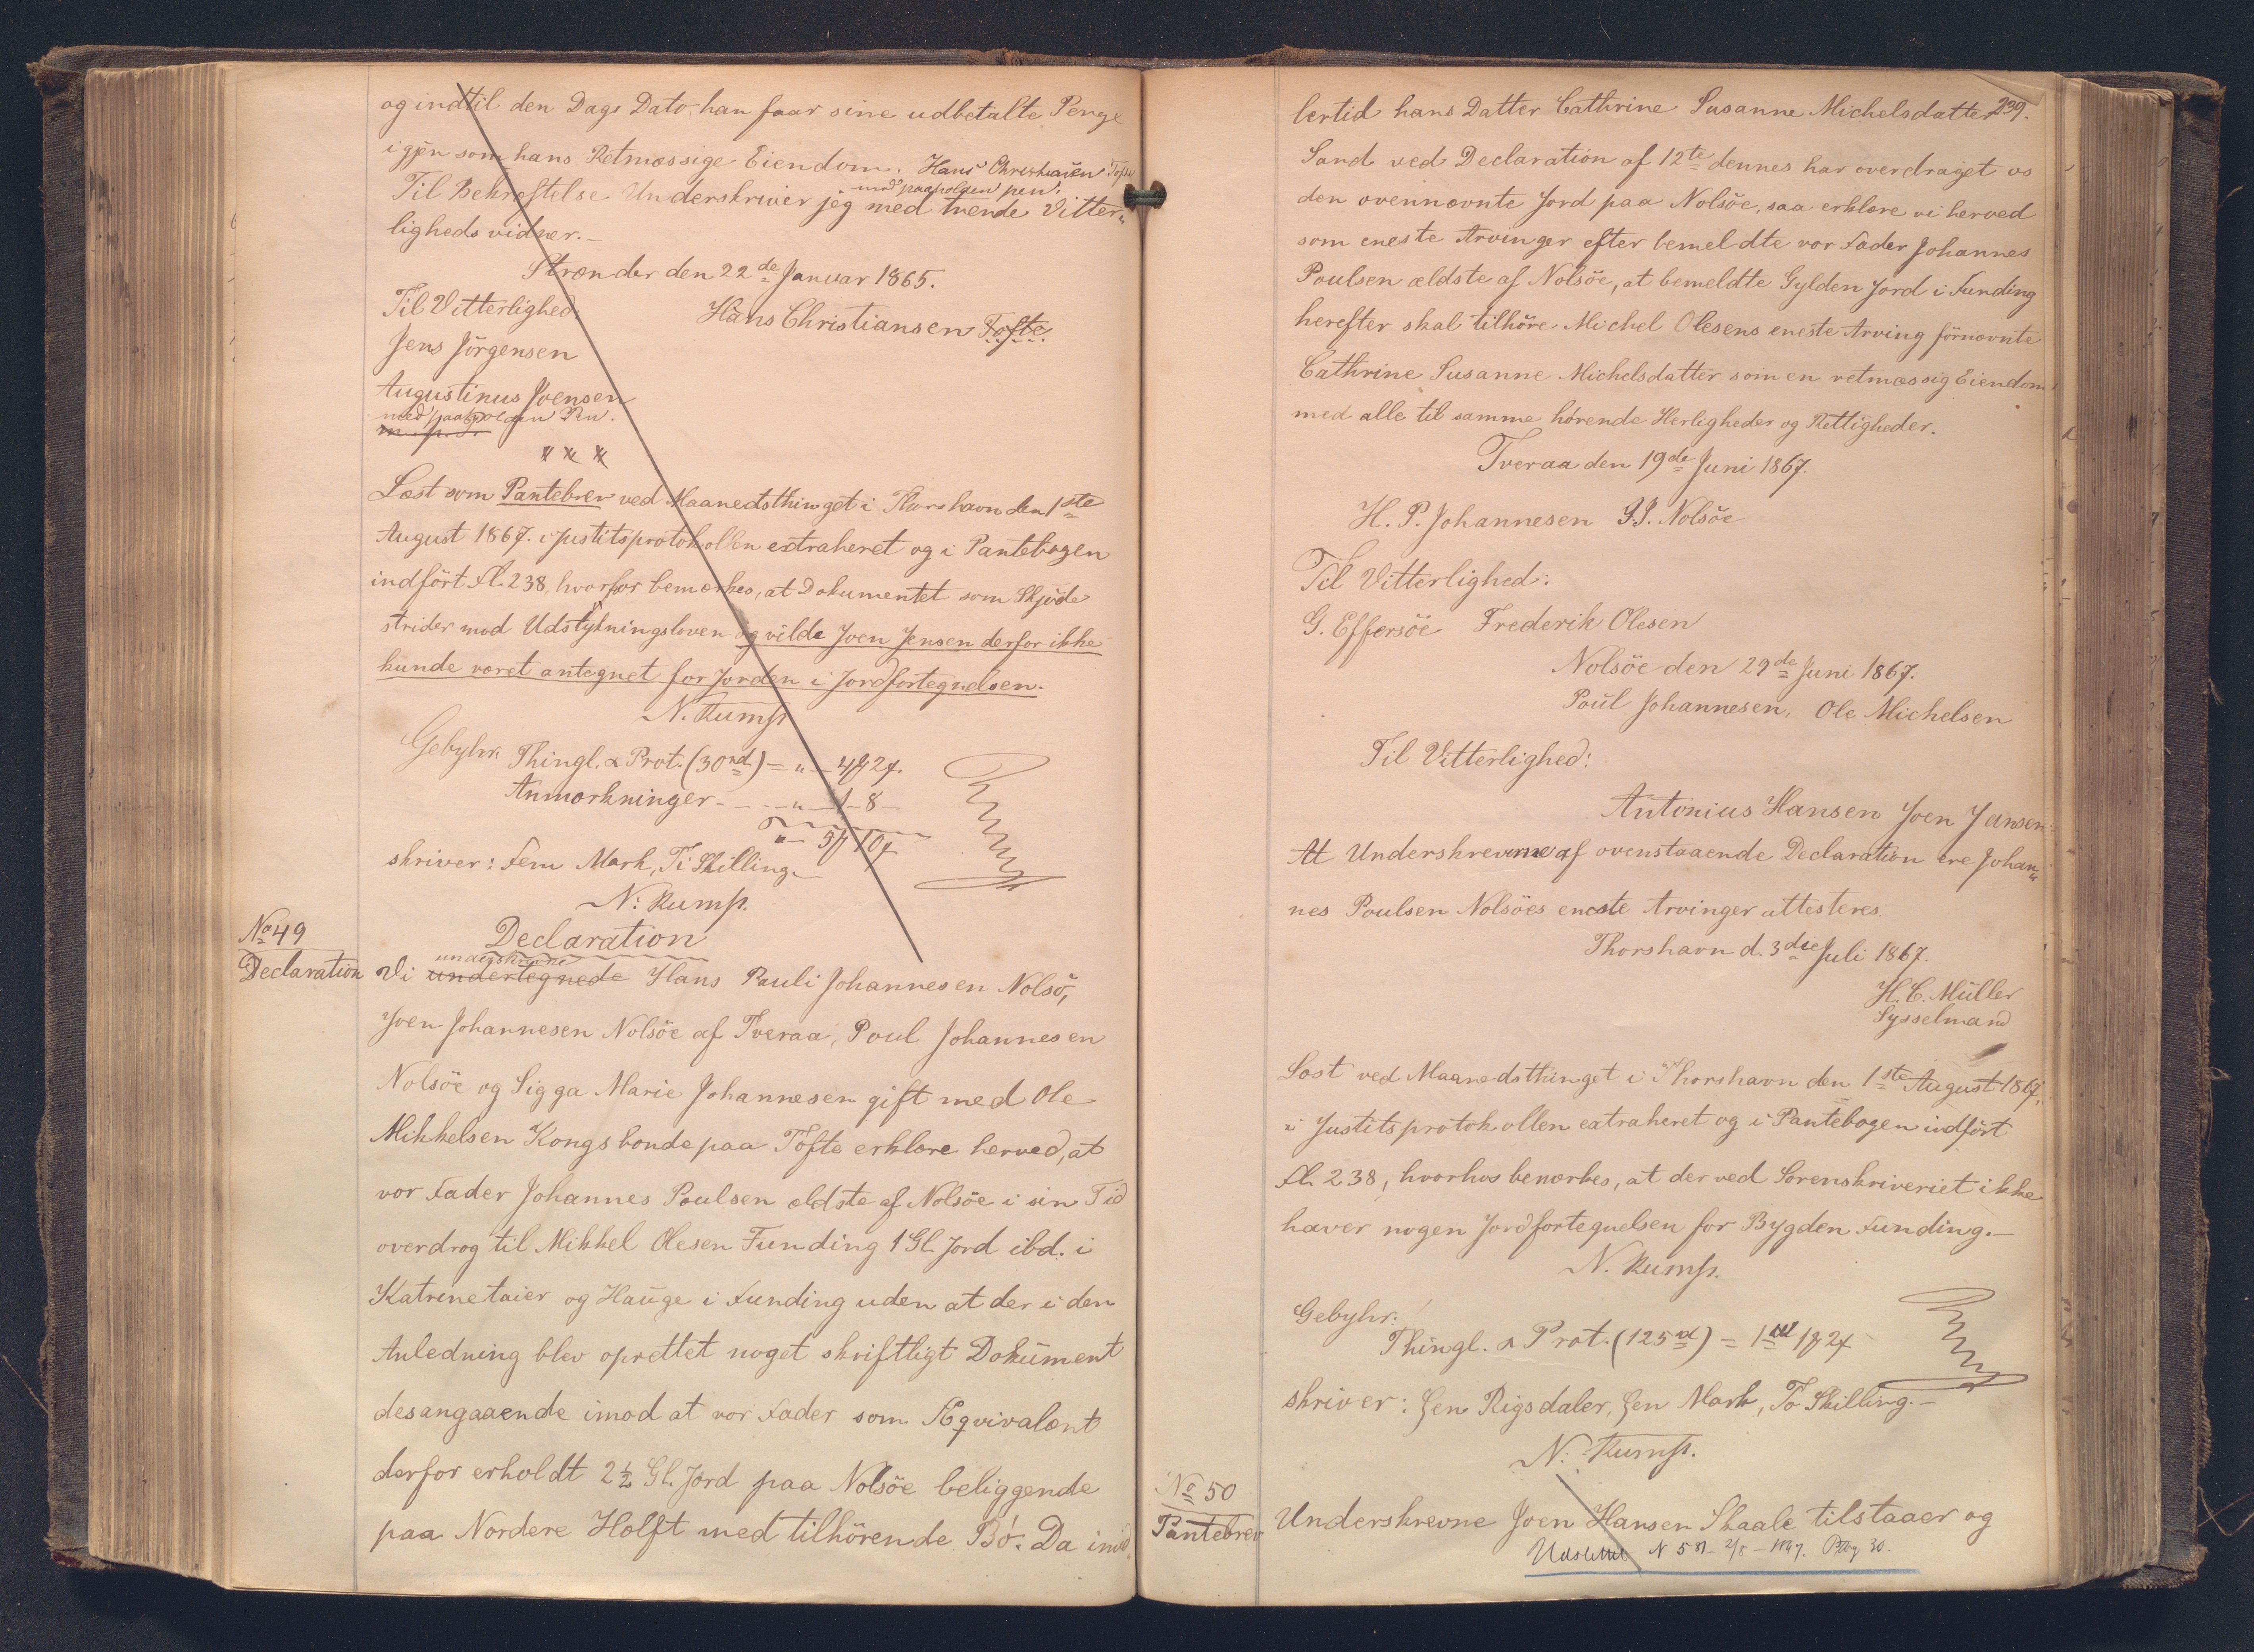 og indtil den Dags Dato, han faar sine udbetalte Penge
igjen som hans Retmæssige Eiendom. Hans Christiansen Tofte
med paaholden pen.
Til Bekræftelse Underskriver jeg med tvende Vitter-
ligheds vidner.-
Strænder den 22de Januar 1865.
Til Vitterlighed Hans Christiansen Tofte
Jens Jörgensen
Augustinus Joensen
med paaholden Pen.
m. p. P.
Læst som Pantebrev ved Maanedsthinget i Thorshavn den 1ste
August 1867. i Justitsprotokollen extraheret og i Pantebogen
indfört Fl. 238, hvorfor bemærkes, at Dokumentet som Skjöde
strider mod Udstykningsloven og vilde Joen Jensen derfor ikke
kunde været antegnet for Jorden i Jordfortegnelsen.
N. Rump
Gebyhr. Thingl. & Prot. (30rd) = " - 4 # 2 f.
Anmærkninger - - - " - 1 - 8 -
" - 5 # 10 f
skriver: Fem Mark, Ti Skilling.-
N. Rump.
No 49
Declaration
Declaration
underskrevne
Vi undertegnede Hans Pauli Johannesen Nolsö,
Joen Johannesen Nolsöe af Tveraa, Poul Johannesen
Nolsöe og Sigga Marie Johannesen gift med Ole
Mikkelsen Kongsbonde paa Tofte erklære herved, at
vor Fader Johannes Poulsen ældste af Nolsöe i sin Tid
overdrog til Mikkel Olesen Funding 1 Gl. Jord ibd. i
Katrinetaier og Hauge i Funding uden at der i den
Anledning blev oprettet noget skriftligt Dokument
desangaaende imod at vor Fader som Æqvivalent
derfor erholdt 2 1/2 Gl. Jord paa Nolsöe beliggende
paa Nordere Holft med tilhörende Bö. Da imid
239.
lertid hans Datter Cathrine Susanne Michelsdatter
Sand ved Declaration af 12te dennes har overdraget os
den ovennævnte Jord paa Nolsöe, saa erklære vi herved
som eneste Arvinger efter bemeldte vor Fader Johannes
Poulsen ældste af Nolsöe, at bemeldte Gylden Jord i Funding
herefter skal tilhöre Michel Olesens eneste Arving förnævnte
Cathrine Susanne Michelsdatter som en retmæssig Eiendom
med alle til samme hörende Herligheder og Rettigheder.
Tveraa den 19de Juni 1867.
H. P. Johannesen J. J. Nolsöe
Til Vitterlighed:
G. Effersöe Frederik Olesen
Nolsöe den 29de Juni 1867.
Poul Johannesen, Ole Michelsen
Til Vitterlighed:
Antonius Hansen Joen Jansen
At Underskrevne af ovenstaaende Declaration ere Johan-
nes Poulsen Nolsöes eneste Arvinger attesteres.
Thorshavn d. 3die Juli 1867.
H. C. Müller
Sysselmand
Læst ved Maanedsthinget i Thorshavn den 1ste August 1867,
i Justitsprotokollen extraheret og i Pantebogen indfört
Fl. 238, hvorhos bemærkes, at der ved Sorenskriveriet ikke
haver nogen Jordfortegnelsen for Bygden Funding.-
N. Rump.
Gebyhr:
Thingl. & Prot. (125rd) = 1rd 1 # 2 f
skriver: Een Rigsdaler, Een Mark, To Skilling.-
N. Rump.
No 50
Pantebrev
Underskrevne Joen Hansen Skaale tilstaaer og
Udslettet N 581 - 2/8 - 1947. Pbog 30.